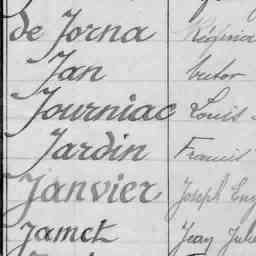 de Jorna Régina
Jan Victor
Journiac Louis
Jardin Francis
Janvier Joseph Eug
Jamet Jean Jule